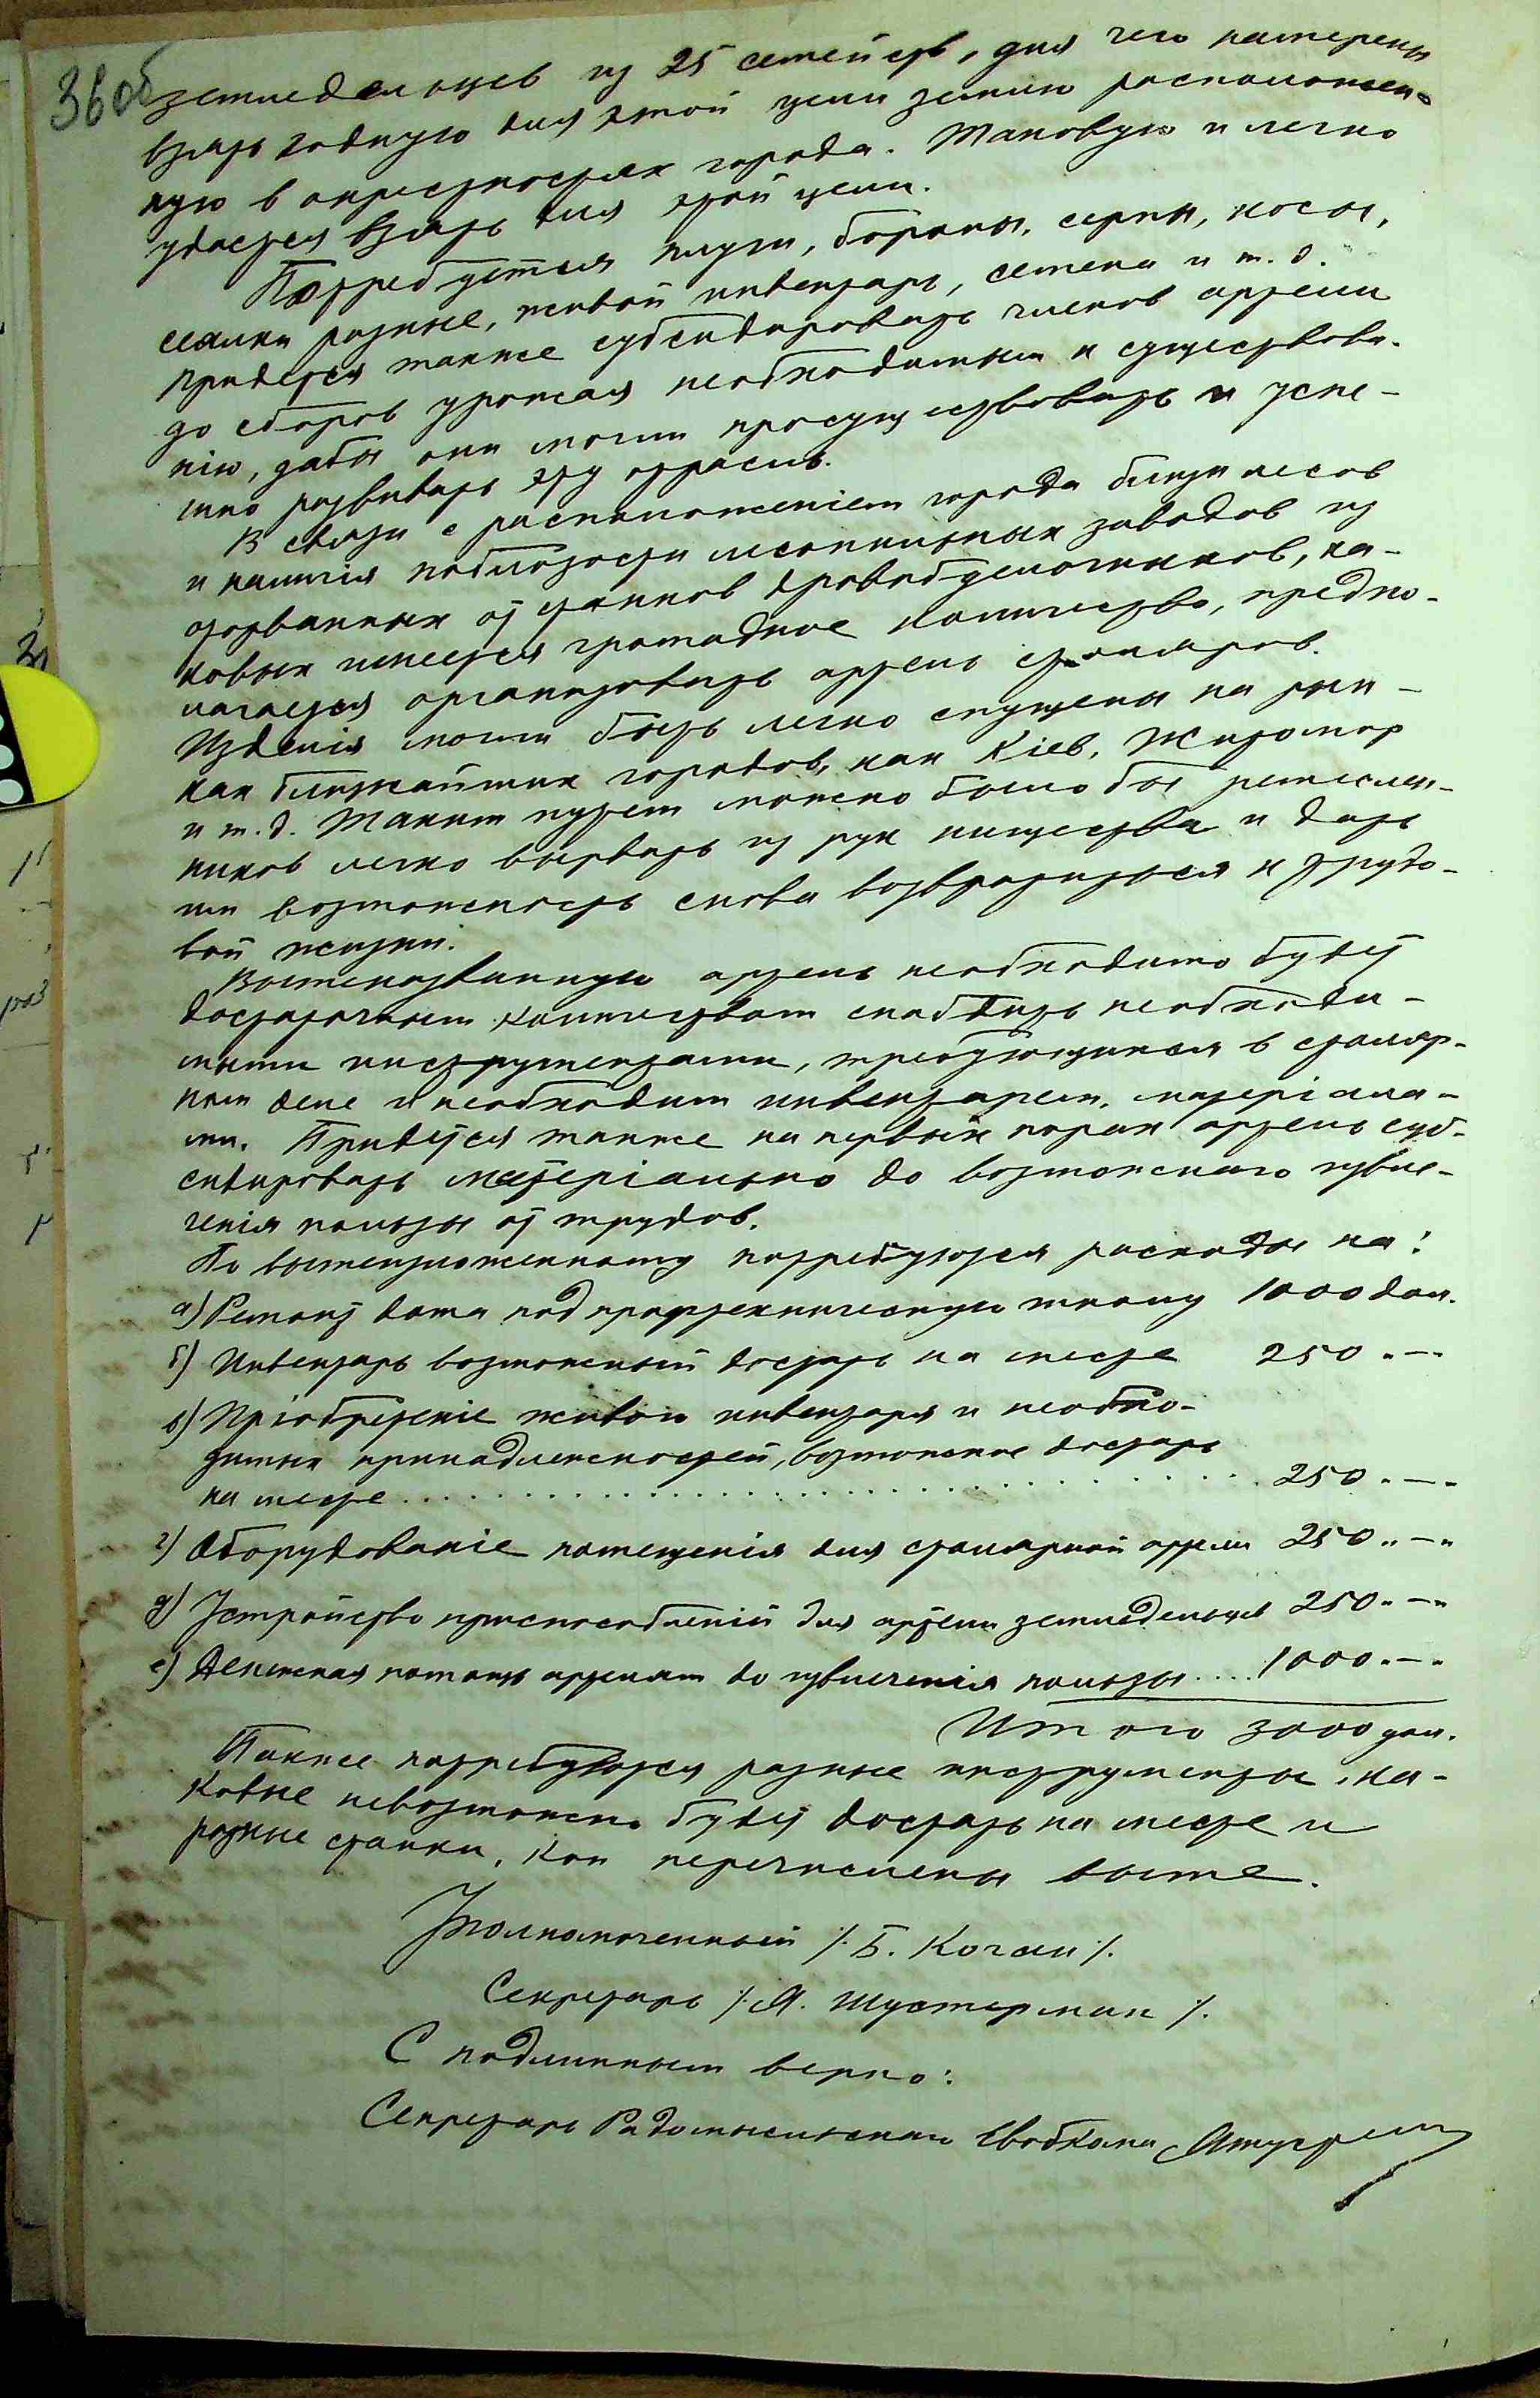 36об
земледельцев из 25 семейств, для чего намерены
взять годную для этой цели землю расположен-
ную в окрестностях города. Таковую и легко
удастся взять для этой цели.
Потребуется плуги, бороны, серпы, косы,
сеялки разные, живой инвентарь, семена и т. д.
Придется также субсидировать членов артели
до сборов урожая необходимым к существова-
нію, дабы они могли просуществовать и успе-
шно развивать эту отрасль.
В связи с расположеніем города близи лесов
и наличія поблизости лесопильных заводов из
оторванных от станков деревообделочников, ка-
ковых имеется громадное количество, предпо-
лагается организовать артель столяров.
Изделія могли быть легко спущены на рын-
ках ближайших городов, как Кіев, Житомир
и т. д. Таким путем можно было бы ремеслен-
ников легко вырвать из рук нищества и дать
им возможность снова возвратиться к трудо-
вой жизни.
Вышеназванную артель необходимо будет
достаточным количеством снабдить необходи-
мыми инструментами, требующимися в столяр-
ном деле и необходим инвентарем, матеріала-
ми. Придется также на первых порах артель суб-
сидировать матеріально до возможного извле-
ченія пользы от трудов.
По вышеизложенному потребуются расходы на:
а) Ремонт дома под профтехническую школу 1000 дол.
б) Инвентарь возможный достать на месте 250 „—„
в) Пріобретеніе живого инвентаря и необхо-
димых принадлежностей, возможное достать
на месте . . . . . . . . . . . . . . . . . 250 „—„
г) Оборудованіе помещенія для столярной артели 250 „—„
д) Устройство приспособленій для артели земледельцев 250 „—„
е) Денежная помощь артелям до извлеченія пользы .... 1000 „—„
Итого 3000 дол.
Также потребуются разные инструменты, ка-
ковые невозможно будет достать на месте и
разные станки, кои перечислены выше.
Уполномоченный /. Б. Коган /.
Секретарь /. Я. Шустерман /.
С подлинным верно:
Секретарь Радомысльского Евобкома